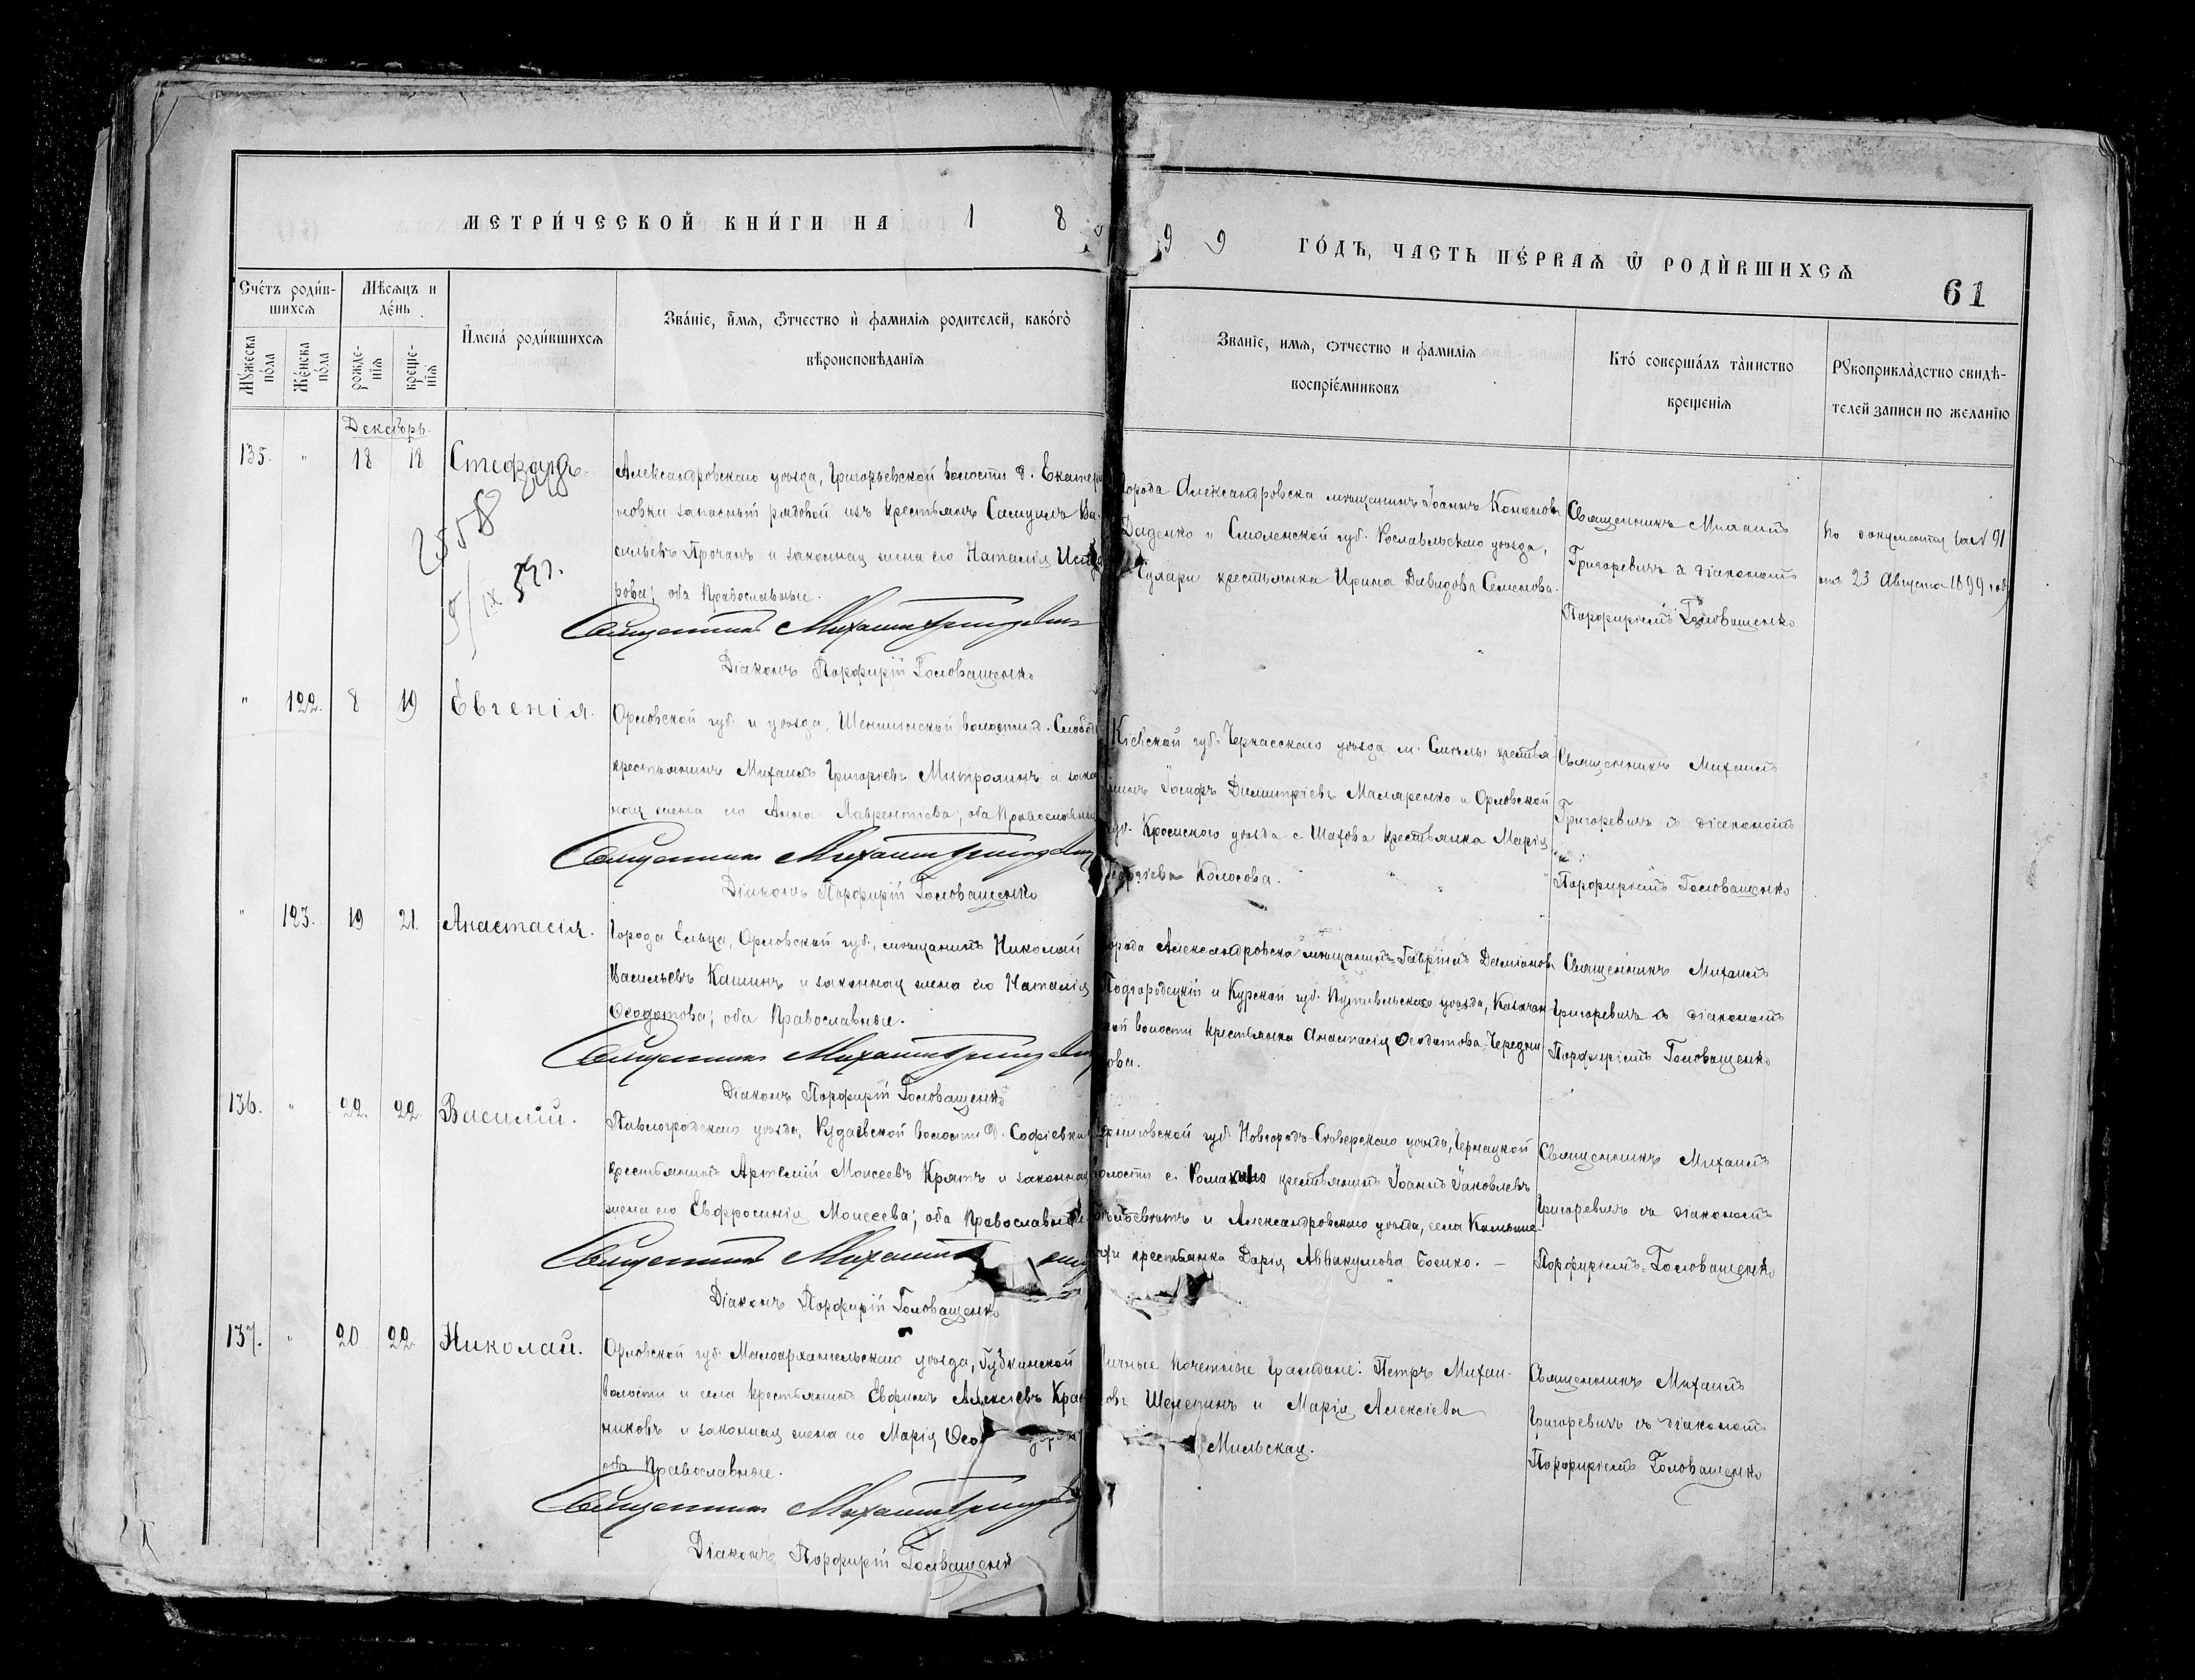 МЕТРИ́ЧЕСКОЙ КНИ́ГИ НА 1899 ГО́ДЪ, ЧАСТЬ ПЕ́РВАѦ Ѿ РОДИ́ВШИХСѦ
61
Сче́тъ роди́в-
шихсѧ
Мѣсѧцъ и
де́нь
Мꙋ́жеска
по́ла
Же́нска
по́ла
рожде-
нїѧ
креще-
нїѧ
И҆мена́ роди́вшихсѧ
Зва́нїе, и҆́мѧ, ѻ҆́тчество и҆ фамилїѧ родителей, како́гѡ
вѣроисповѣданїѧ
Званїе, имѧ, ѻтчество и фамилїѧ
воспрїе́мниковъ
Кто́ соверша́лъ та́инство
крещенїѧ
Рꙋкоприкла́дство свидѣ-
телей записи по желанїю
Декабрь
135. " 18 18 Стефанъ.
Александровскаго уѣзда, Григорьевской волости д. Екатери
новки запасный рядовой изъ крестьянъ Самуилъ Ва-
сильевъ Прочанъ и законная жена его Наталія
рова; оба Православные.
Священникъ Михаилъ Григоревичъ
Діаконъ Порфирій Головащенко
города Александровска мѣщанинъ Іоаннъ Кононовъ
Диденко и Смоленской губ. Рославльскаго уѣзда,
крестьянка Ирина Давидова Семенова.
Священникъ Михаилъ
Григоревичъ съ діакономъ
Порфиріемъ Головащенко
По документу за № 91
отъ 23 Августа 1899 года
" 122. 8 19 Евгенія.
Орловской губ. и уѣзда, волости д. Слобод
крестьянинъ Михаилъ Григоріевъ Митрохинъ и закон
ная жена его Анна Лаврентіева; оба Православные
Священникъ Михаилъ Григоревичъ
Діаконъ Порфирій Головащенко
Кіевской губ. Черкасскаго уѣзда м. Смѣлы крестья-
нинъ Іосифъ Димитріевъ Маляренко и Орловской
губ. Кромскаго уѣзда с. Шахова крестьянка Марія
Георгіева Колосова.
Священникъ Михаилъ
Григоревичъ съ діакономъ
Порфиріемъ Головащенко
" 123. 19 21. Анастасія.
Города Ельца, Орловской губ., мѣщанинъ Николай
Васильевъ Кашинъ и законная жена его Наталія
Ѳеодотова; оба Православные.
Священникъ Михаилъ Григоревичъ
Діаконъ Порфирій Головащенко
города Александровска мѣщанинъ Гавріилъ Даміановъ
Подгородецкій и Курской губ. Путивльскаго уѣзда, Казачан-
ской волости крестьянка Анастасія Ѳеодотова
ова.
Священникъ Михаилъ
Григоревичъ съ діакономъ
Порфиріемъ Головащенко
136. " 22. 22. Василій.
Павлоградскаго уѣзда, волости д. Софіевки
крестьянинъ Артемій Моисеевъ Кратъ и законная
жена его Евфросинія Моисеева; оба Православные
Священникъ Михаилъ
Діаконъ Порфирій Головащенко
Черниговской губ. Новгородъ-Сѣверскаго уѣзда,
волости с. крестьянинъ Іоаннъ Іаковлевъ
и Александровскаго уѣзда, села
крестьянка Дарія Аввакумова Бойко.
Священникъ Михаилъ
Григоревичъ съ діакономъ
Порфиріемъ Головащенко
137. " 20 22. Николай.
Орловской губ. Малоархангельскаго уѣзда, Губкинской
волости и села крестьянинъ Евфимъ Алексіевъ
никовъ и законная жена его Марія
оба Православные.
Священникъ Михаилъ Григоревичъ
Діаконъ Порфирій Головащенко
Личные почетные граждане: Петръ Михаи-
ловъ Шепетинъ и Марія Алексіева
Мильская.
Священникъ Михаилъ
Григоревичъ съ діакономъ
Порфиріемъ Головащенко